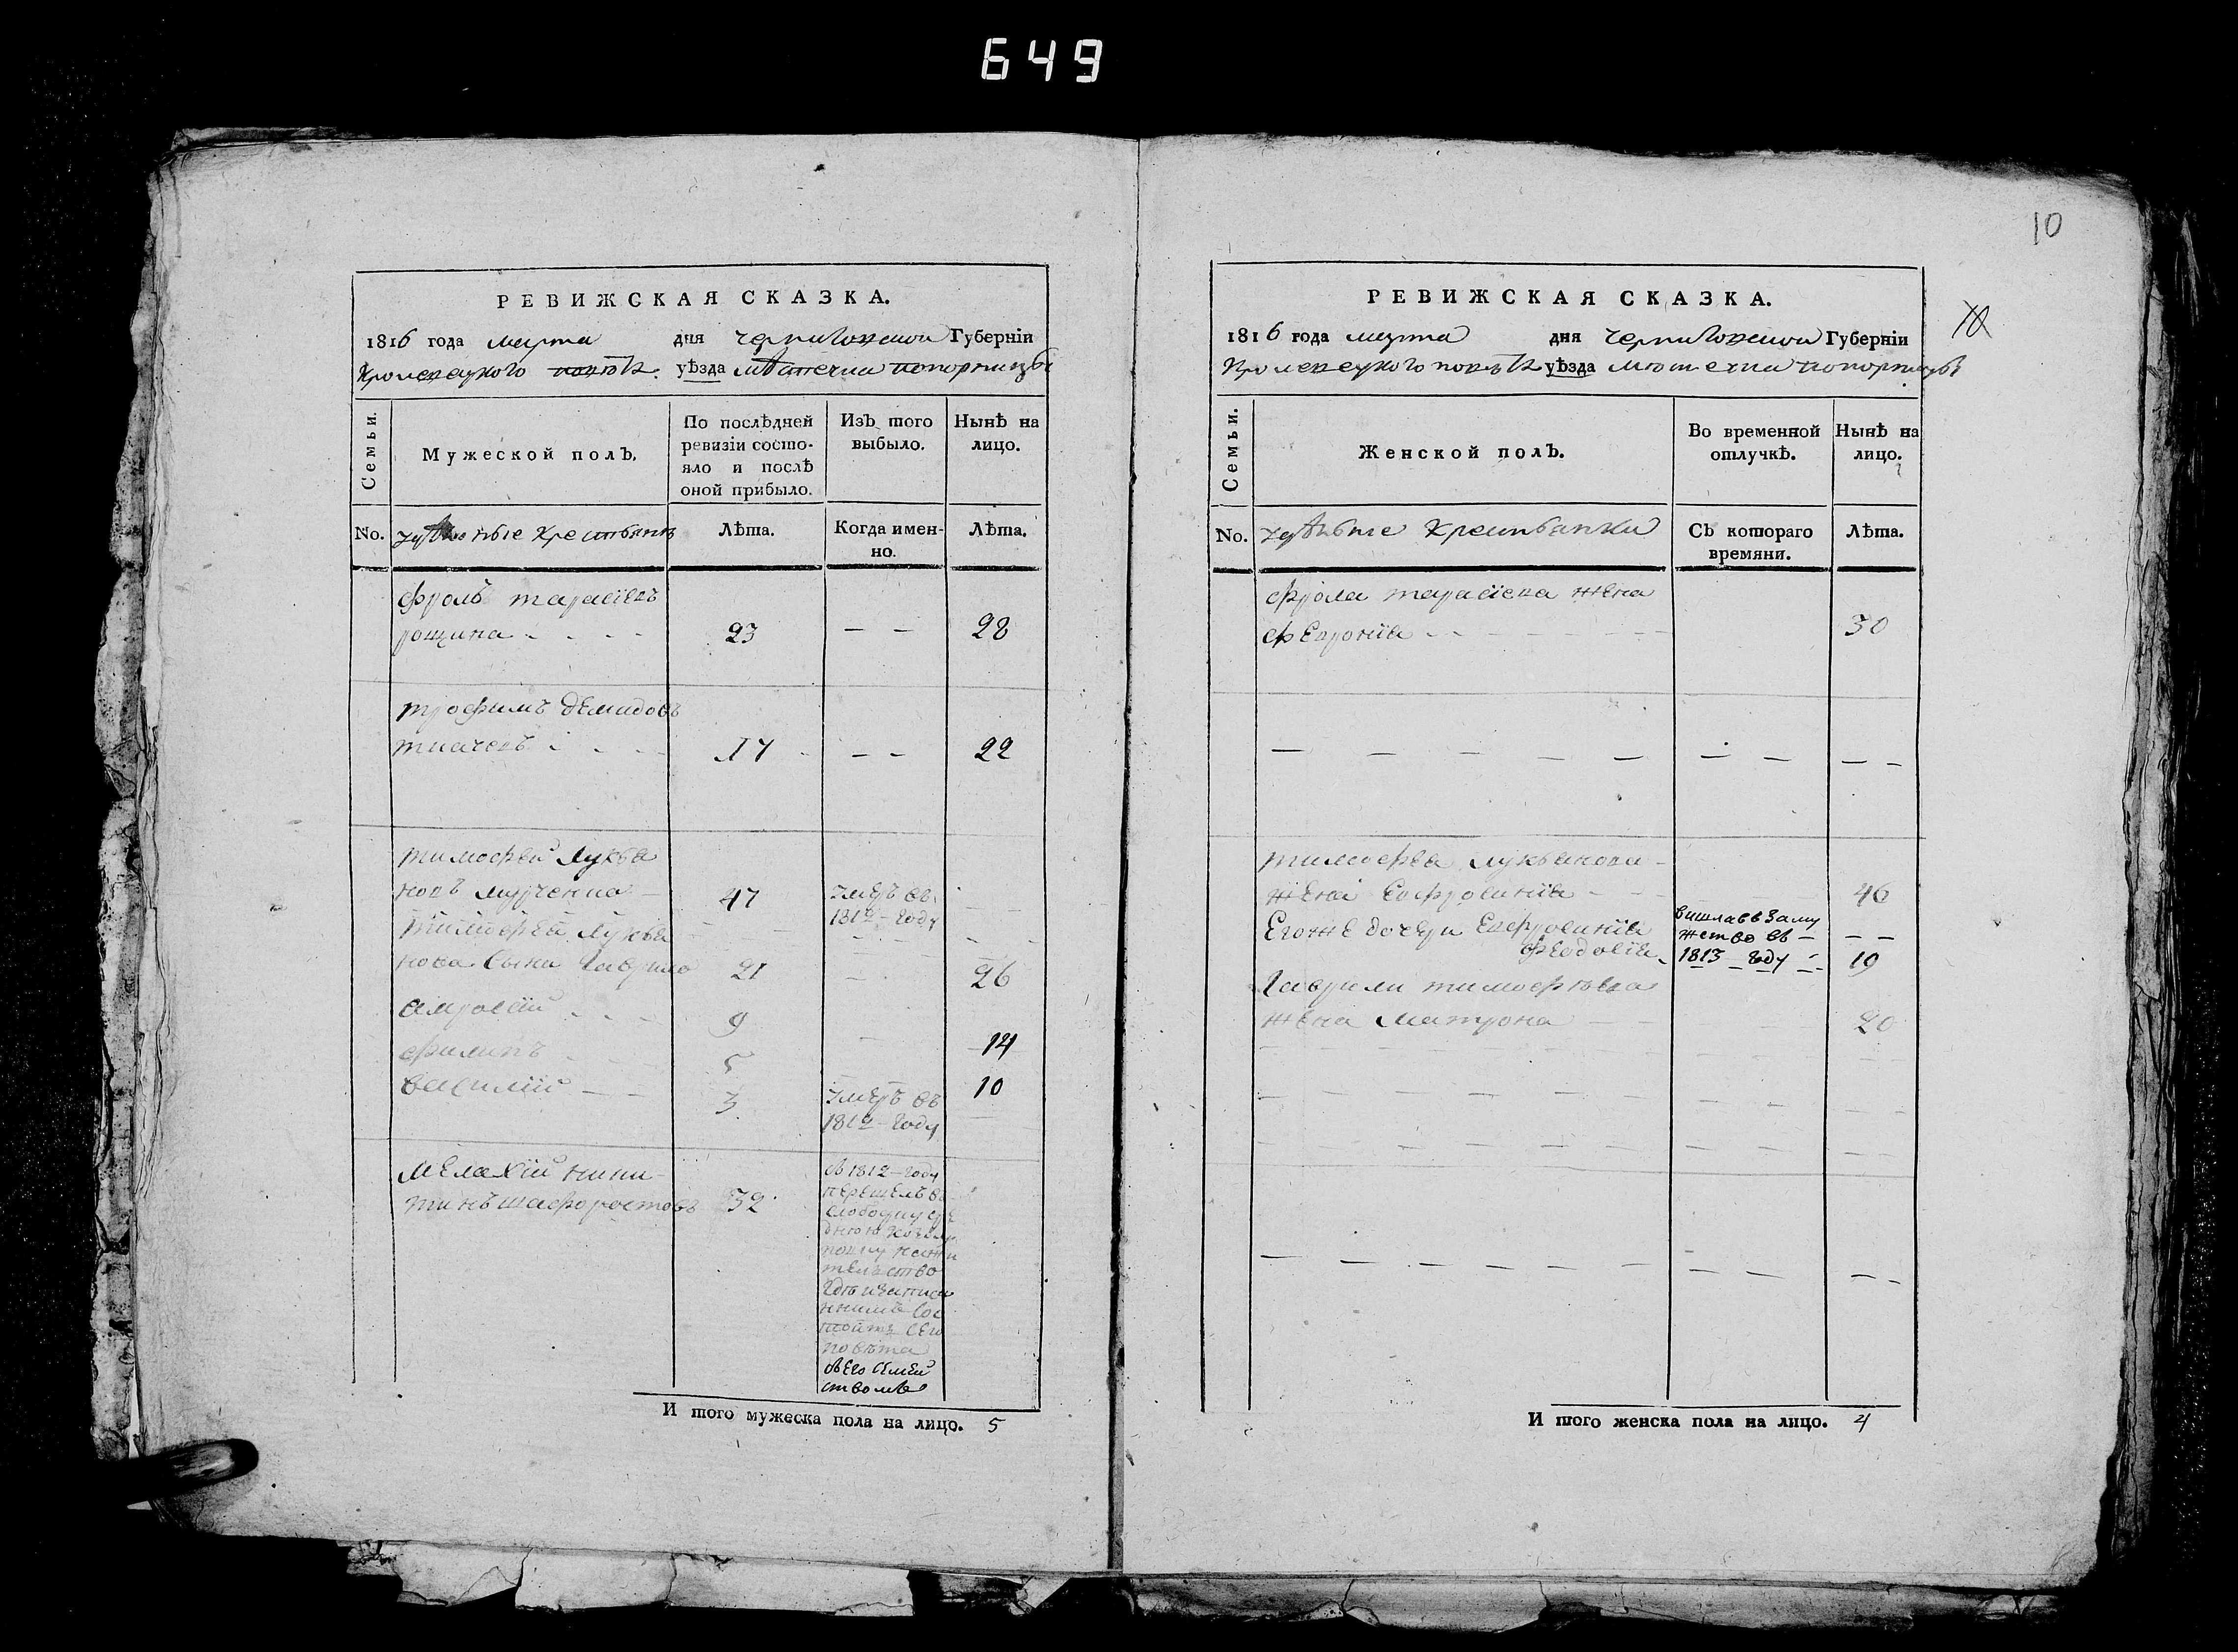 649
РЕВИЖСКАЯ СКАЗКА.
1816 года марта дня Черниговской Губерніи
Кролевецкого повѣта уѣзда мѣстечка Понорницы
Семьи.
Мужеской полъ.
По послѣдней ревизіи состо-
яло и послѣ
оной прибыло.
Изъ того
выбыло.
Нынѣ на
лицо.
No.
удѣлные крестьянѣ
Лѣта.
Когда имен-
но.
Лѣта.
Фролъ Тарасіевъ
рощина 23 — — 28
Трофимъ Демидовъ
ткачевъ 17 — — 22
Тимофей Лукья
новъ 47 умеръ въ
1812 году
Тимофея Лукья
нова сына Гаврило 21 26
Амросій 9 14
Филипъ 5 10
Василій 3 умеръ въ
1812 году
Мелахій Ники-
тинъ шафоростовъ 32
в 1812 году
перешелъ в
слободу
тельство
повета
въ его семей
ствомъ
И того мужеска пола на лицо. 5
10
10
РЕВИЖСКАЯ СКАЗКА.
1816 года марта дня Черниговской Губерніи
Кролевецкого повѣта уѣзда мѣстечка Понорницы
Семьи.
Женской полъ.
Во временной
отлучкѣ.
Нынѣ на
лицо.
No.
удѣлные крестьянки
Съ котораго
времяни.
Лѣта.
Фрола Тарасіева жена
Феврониія 30
Тимофея Лукьянова
жена Ефросиния 46
Егоже дочери Ефросиния вишла в заму
жство въ
1813 году
Феодосія 19
Гаврили Тимофеева
жена Матрона 20
И того женска пола на лицо. 4